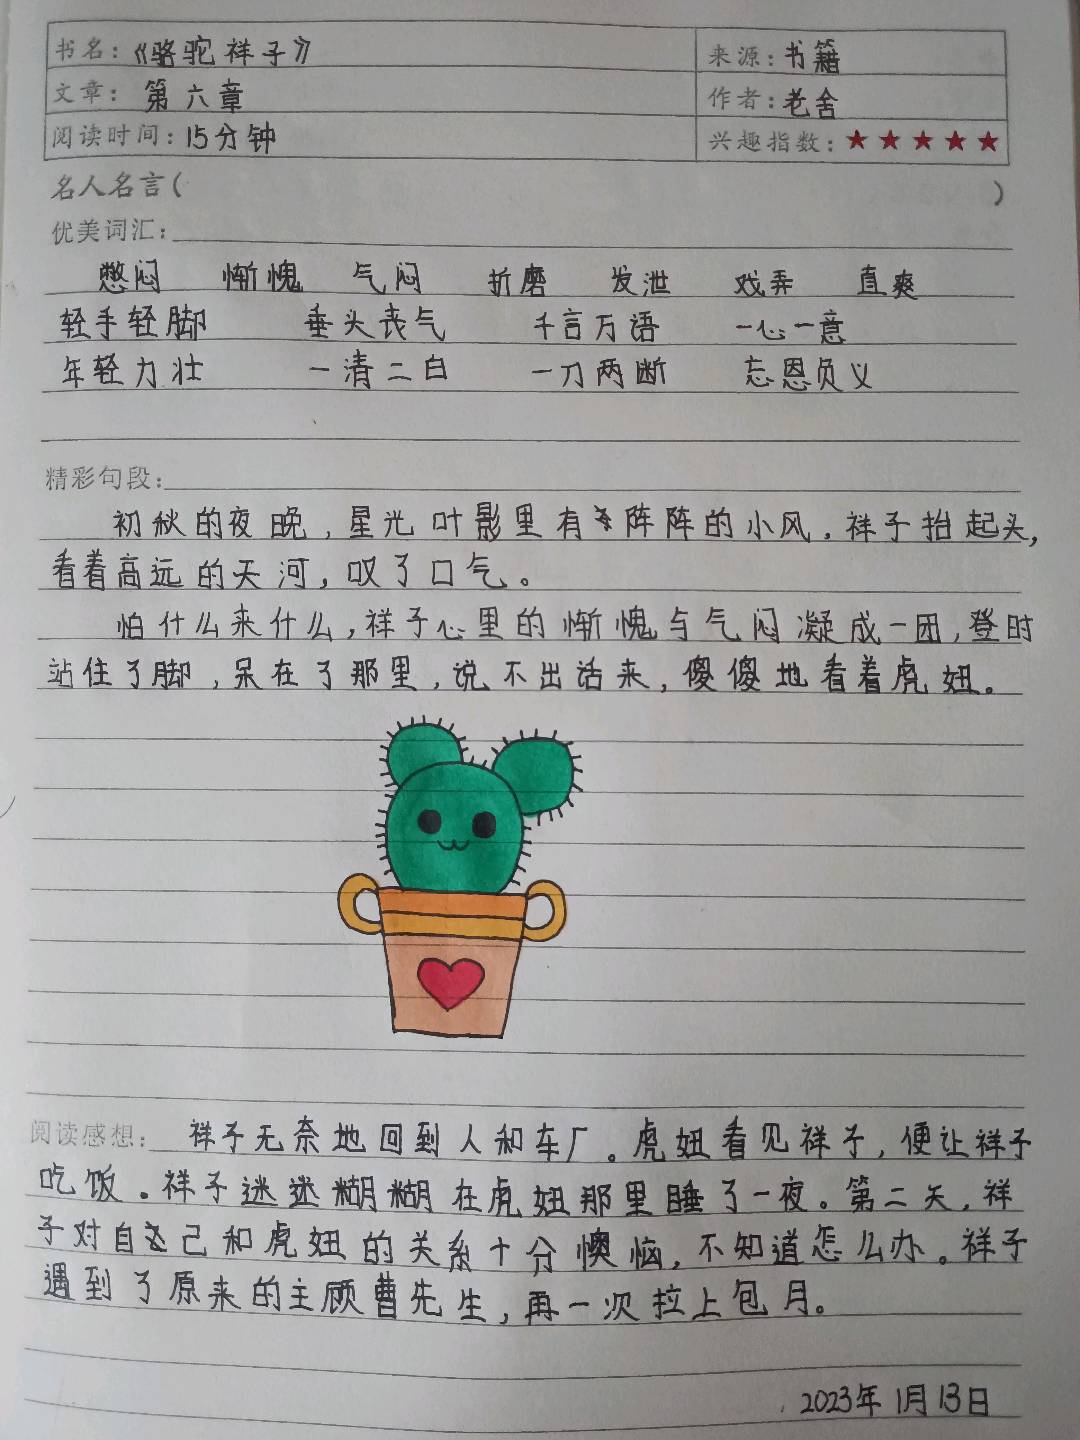 书名：《骆驼祥子》 来源：书籍
文章：第六章 作者：老舍
阅读时间：15分钟 兴趣指数：★★★★★
名人名言（ ）
优美词汇：
憋闷 惭愧 气闷 折磨 发泄 戏弄 直爽
轻手轻脚 垂头丧气 千言万语 一心一意
年轻力壮 一清二白 一刀两断 忘恩负义
精彩句段：
初秋的夜晚，星光叶影里有阵阵的小风，祥子抬起头，
看着高远的天河，叹了口气。
怕什么来什么，祥子心里的惭愧与气闷凝成一团，登时
站住了脚，呆在了那里，说不出话来，傻傻地看着虎妞。
阅读感想：祥子无奈地回到人和车厂。虎妞看见祥子，便让祥子
吃饭。祥子迷迷糊糊在虎妞那里睡了一夜。第二天，祥
子对自己和虎妞的关系十分懊恼，不知道怎么办。祥子
遇到了原来的主顾曹先生，再一次拉上包月。
2023年1月13日